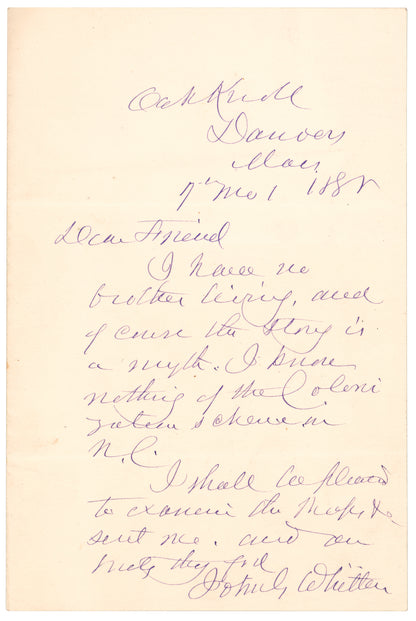 Oak Knoll
Danvers
Mass
7th Mo 1 188
Dear Friend
I have no
brother living, and
of course the story is
a myth. I know
nothing of the Coloni
zation scheme in
N.C.
I shall be pleased
to examine the Maps &c
sent me. and am
truly thy frd
John G Whittier